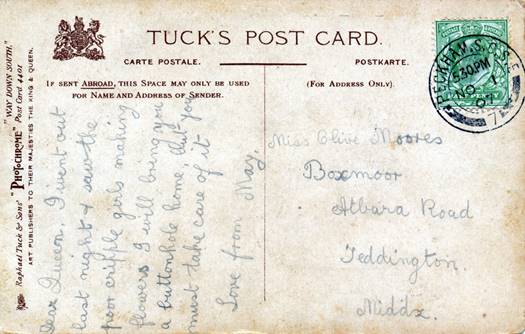 TUCK'S POST CARD.
CARTE POSTALE.
POSTKARTE.
IF SENT ABROAD, THIS SPACE MAY ONLY BE USED
FOR NAME AND ADDRESS OF SENDER.
(FOR ADDRESS ONLY).
Raphael Tuck & Sons' "PHOTOCHROME" Post Card 4401 "WAY DOWN SOUTH."
ART PUBLISHERS TO THEIR MAJESTIES THE KING & QUEEN.
Dear Queen. I went out
last night & saw the
poor cripple girls making
flowers I will bring you
a buttonhole home but you
must take care of it
Love from May.
Miss Olive Moores
Boxmoor
Atbara Road
Teddington.
Middx.
PECKHAM. S.O. S.E
5.30 PM
NO 1
07
7